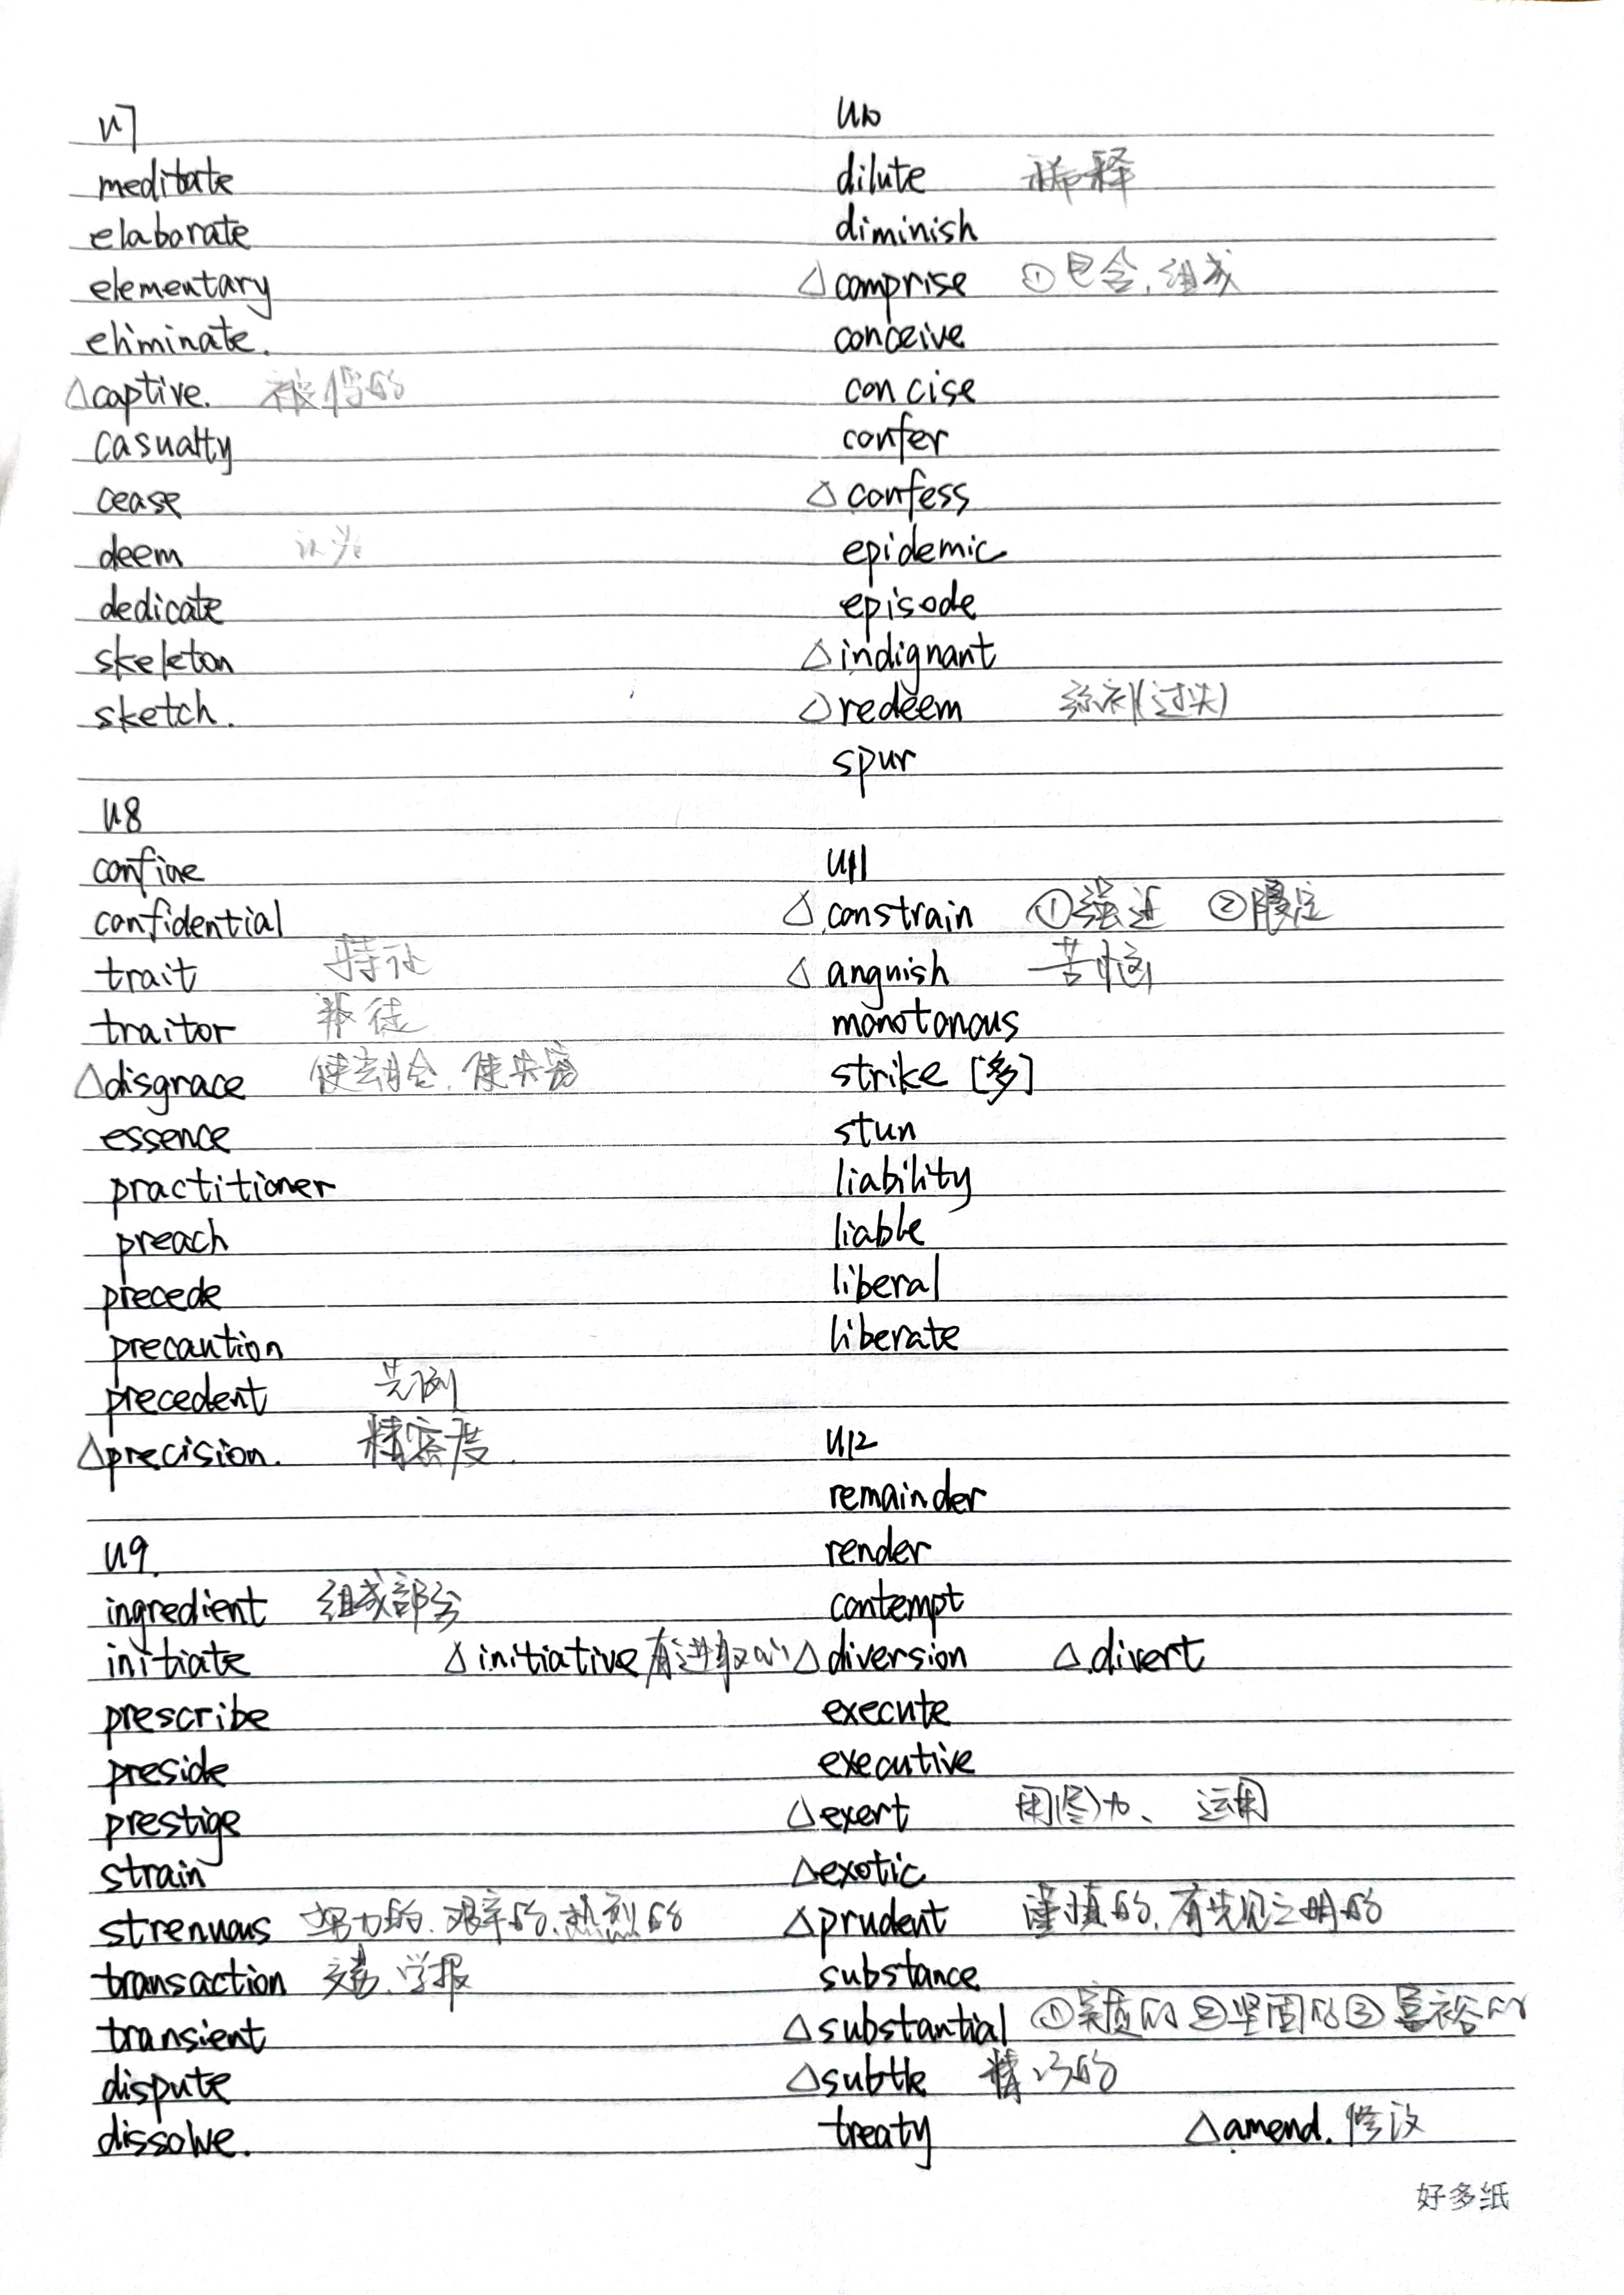 U7
meditate
elaborate
elementary
eliminate.
△captive. 被俘的
casualty
cease
deem 认为
dedicate
skeleton
sketch.
U8
confine
confidential
trait 特征
traitor 叛徒
△disgrace 使蒙羞, 使失宠
essence
practitioner
preach
precede
precaution
precedent 先例
△precision. 精密度.
U9.
ingredient 组成部分
initiate △initiative 有进取心
prescribe
preside
prestige
strain
strenuous 努力的、艰辛的、热烈的
transaction 交易、学报
transient
dispute
dissolve.
U10
dilute 稀释
diminish
△comprise ①包含, 组成
conceive
concise
confer
△confess
epidemic
episode
△indignant
△redeem 弥补(过失)
spur
U11
△constrain ①强迫 ②限定
△anguish 苦恼
monotonous
strike [多]
stun
liability
liable
liberal
liberate
U12
remainder
render
contempt
△diversion △divert
execute
executive
△exert 用(尽)力、运用
△exotic
△prudent 谨慎的, 有先见之明的
substance
△substantial ①实质的 ②坚固的 ③富裕的
△subtle 精巧的
treaty △amend. 修改
好多纸